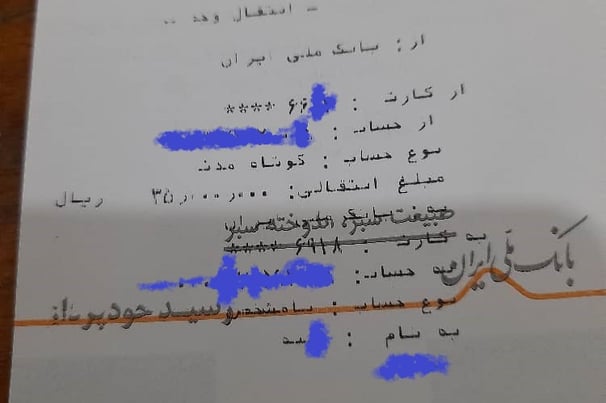 - انتقال وجه -
از: بانک ملی ایران
از کارت : **** ۶۶
از حساب :
نوع حساب : کوتاه مدت
مبلغ انتقالی: ۳۵٫۰۰۰٫۰۰۰ ریال
به بانک
طبیعت سبز، اندوخته سبز
به کارت : **** ۶۹۱۸
به حساب :
بانک ملی ایران
نوع حساب :
رسید خودپرداز
به نام :